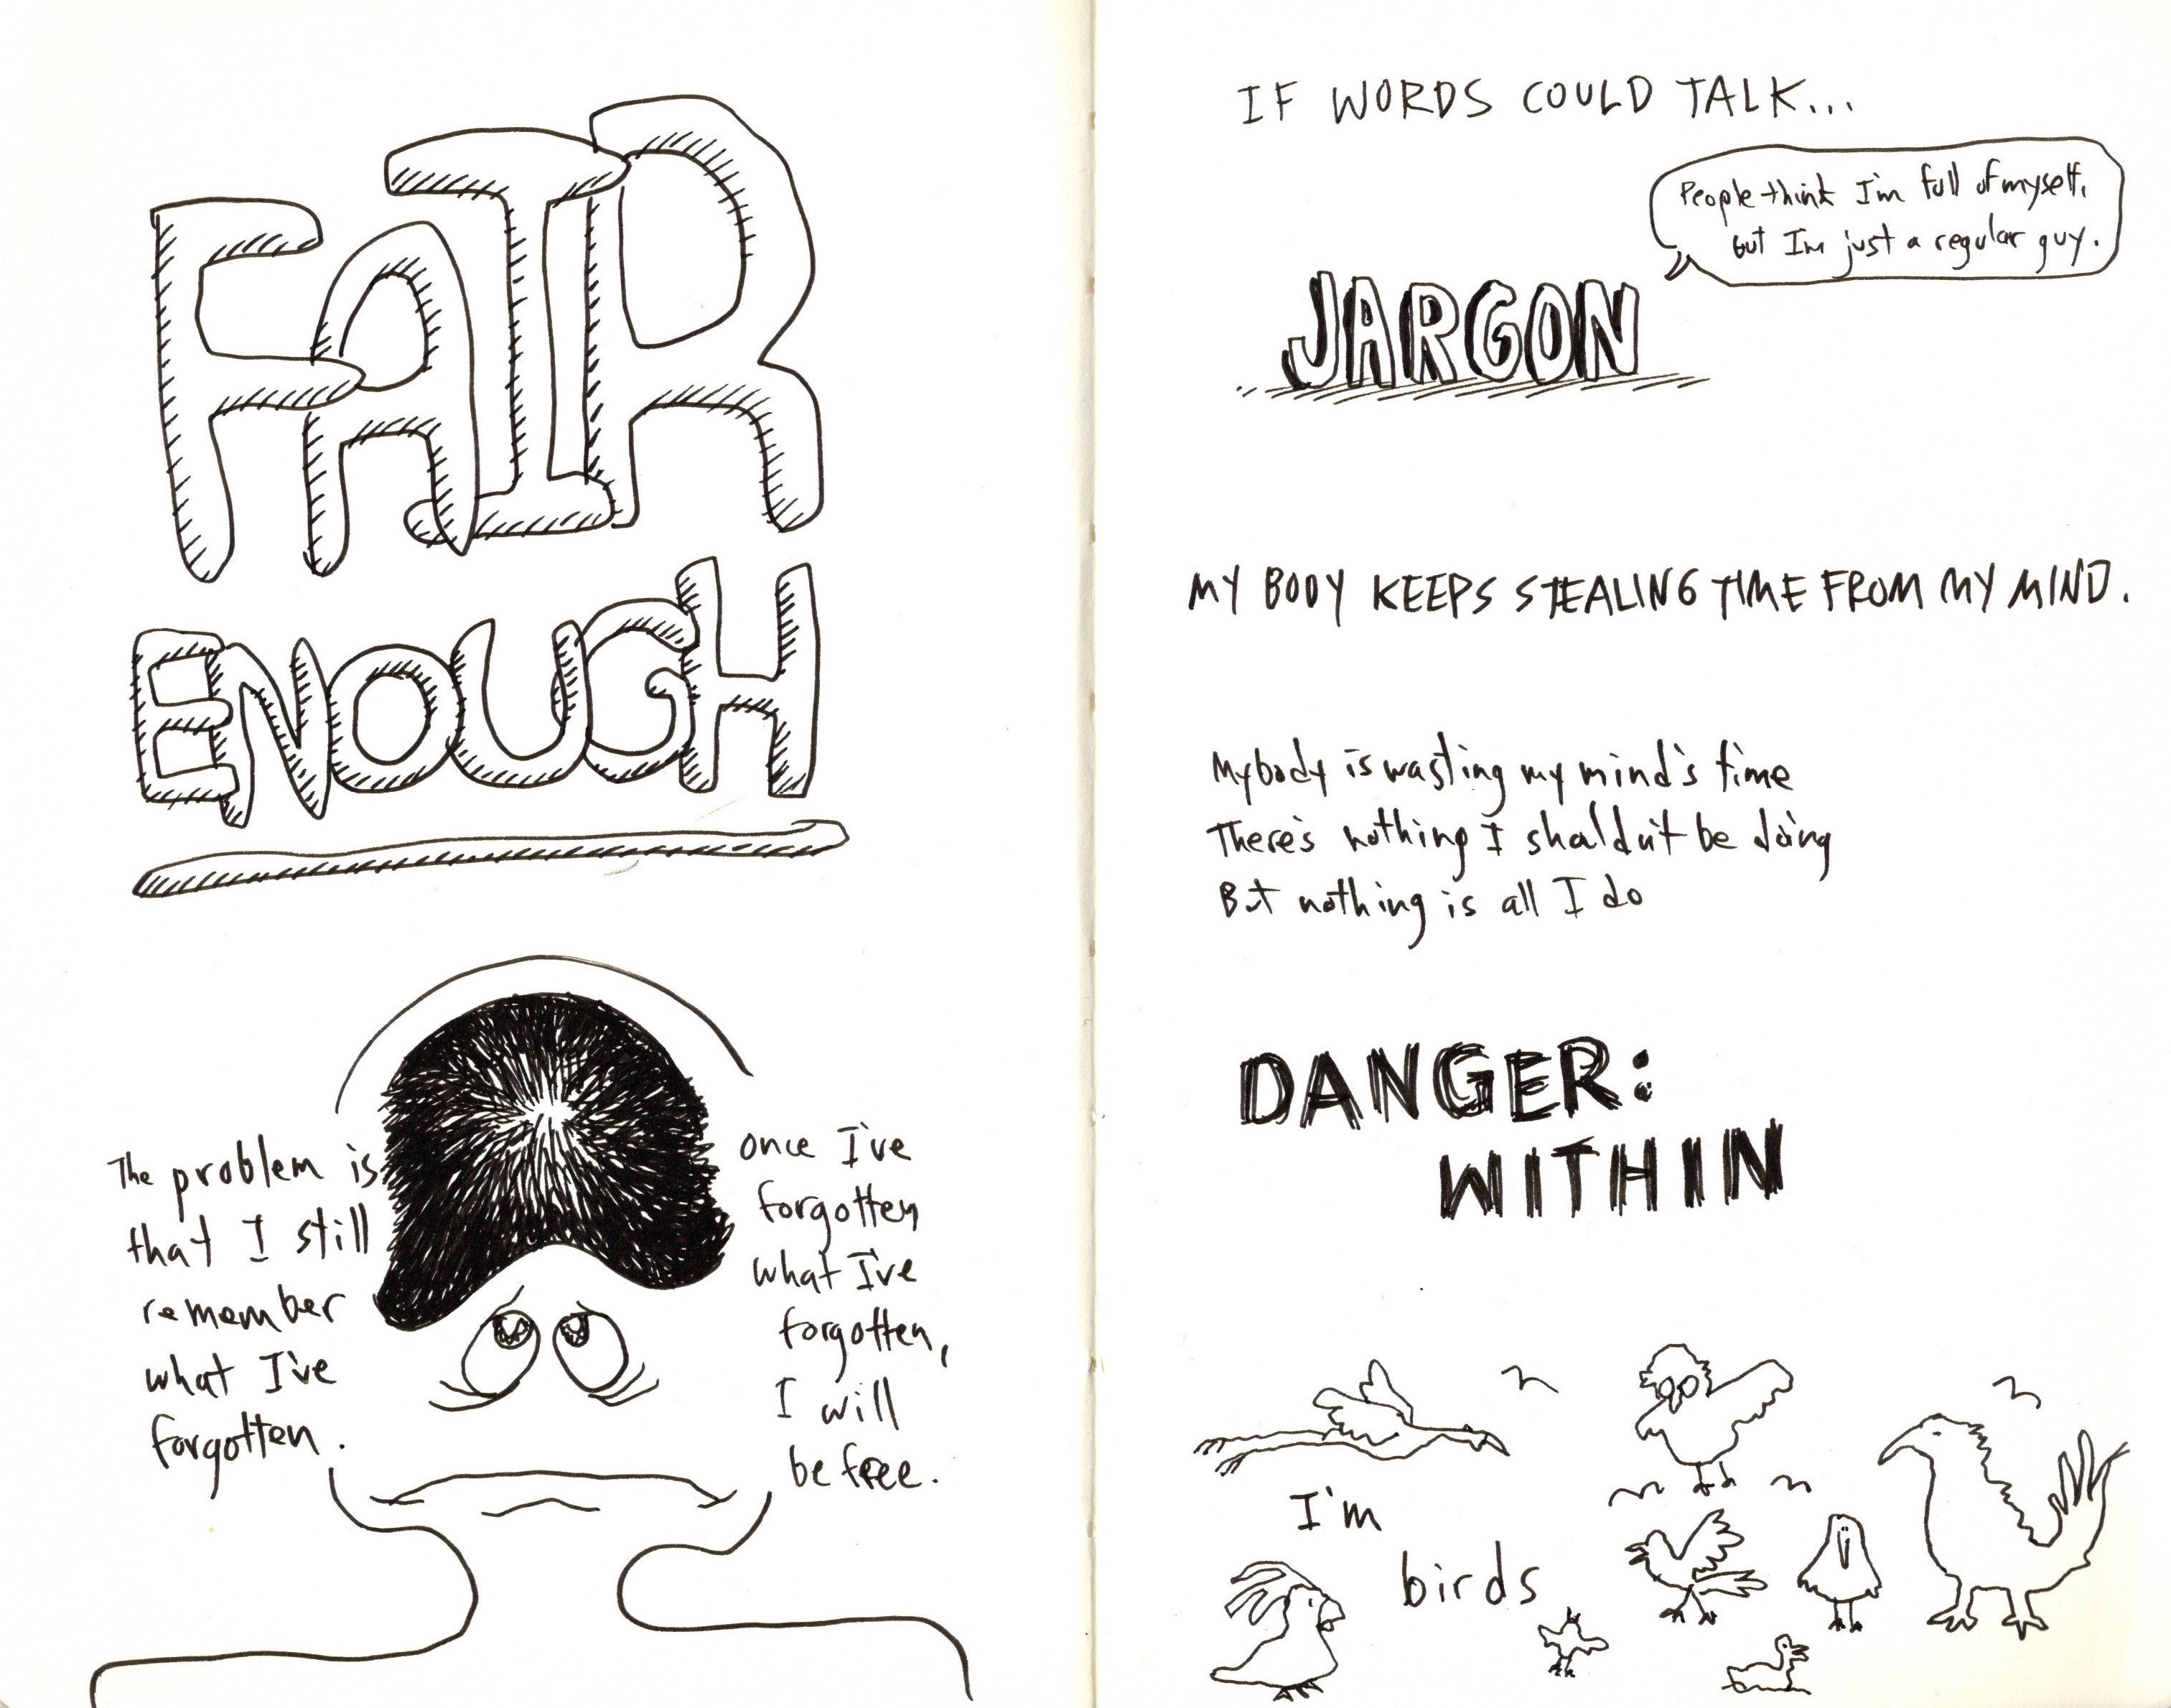 FAIR
ENOUGH
The problem is
that I still
remember
what I've
forgotten.
once I've
forgotten
what I've
forgotten,
I will
be free.
IF WORDS COULD TALK...
People think I'm full of myself,
but I'm just a regular guy.
JARGON
MY BODY KEEPS STEALING TIME FROM MY MIND.
My body is wasting my mind's time
There's nothing I shouldn't be doing
But nothing is all I do
DANGER:
WITHIN
I'm
birds